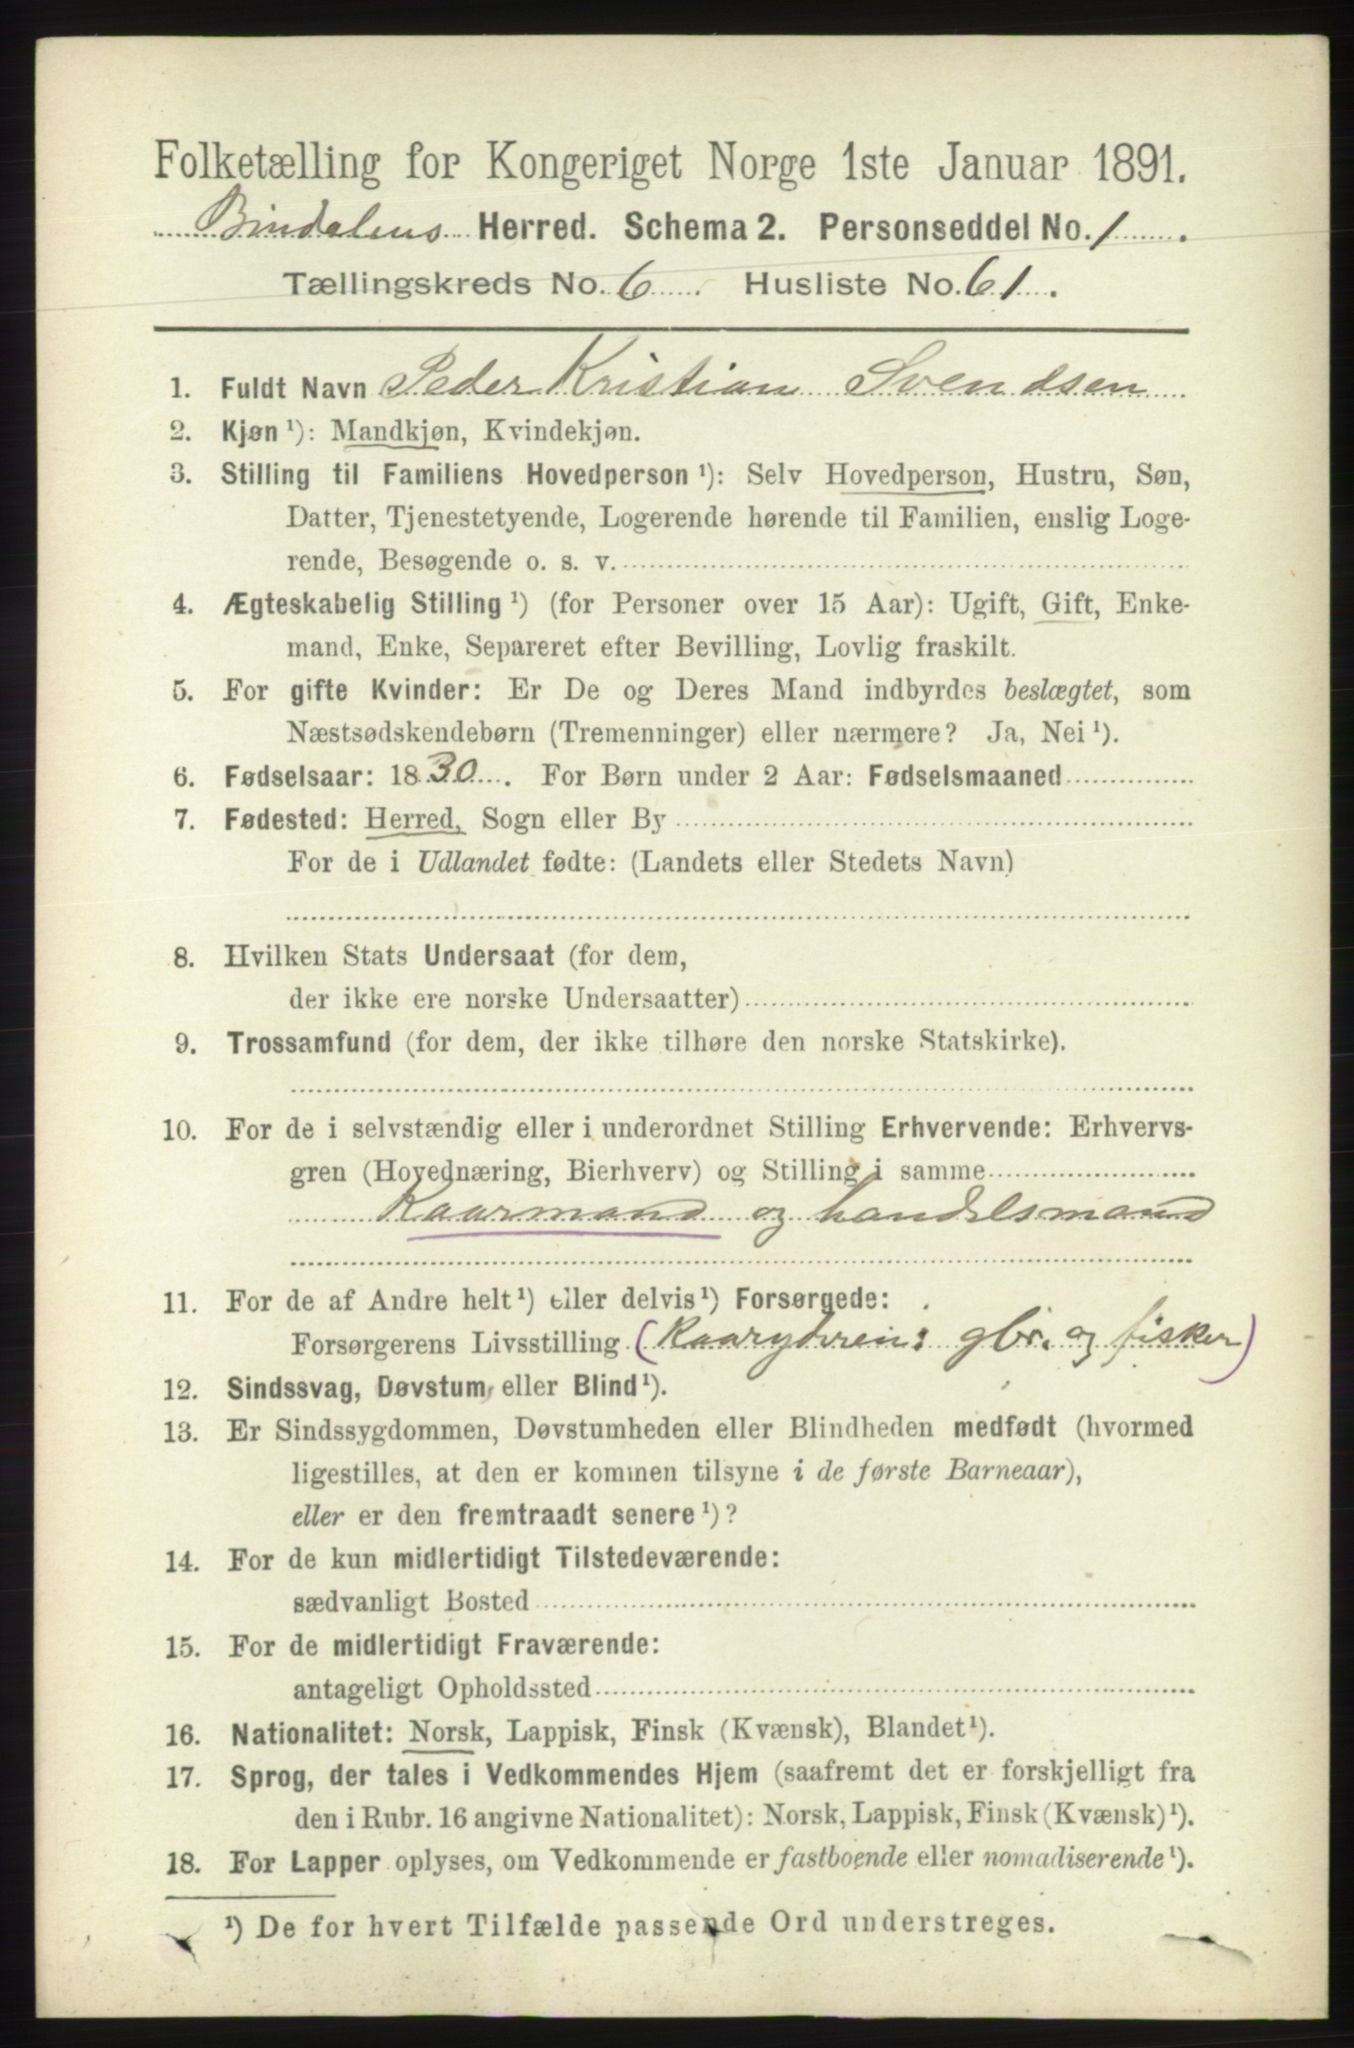 Folketælling for Kongeriget Norge 1ste Januar 1891.
Bindalens Herred. Schema 2. Personseddel No. 1
Tællingskreds No. 6 Husliste No. 61.
1. Fuldt Navn Peder Kristian Svendsen
2. Kjøn ¹): Mandkjøn, Kvindekjøn.
3. Stilling til Familiens Hovedperson ¹): Selv Hovedperson, Hustru, Søn,
Datter, Tjenestetyende, Logerende hørende til Familien, enslig Loge-
rende, Besøgende o. s. v.
4. Ægteskabelig Stilling ¹) (for Personer over 15 Aar): Ugift, Gift, Enke-
mand, Enke, Separeret efter Bevilling, Lovlig fraskilt.
5. For gifte Kvinder: Er De og Deres Mand indbyrdes beslægtet, som
Næstsødskendebørn (Tremenninger) eller nærmere? Ja, Nei ¹).
6. Fødselsaar: 1830. For Børn under 2 Aar: Fødselsmaaned
7. Fødested: Herred, Sogn eller By
For de i Udlandet fødte: (Landets eller Stedets Navn)
8. Hvilken Stats Undersaat (for dem,
der ikke ere norske Undersaatter)
9. Trossamfund (for dem, der ikke tilhøre den norske Statskirke).
10. For de i selvstændig eller i underordnet Stilling Erhvervende: Erhvervs-
gren (Hovednæring, Bierhverv) og Stilling i samme
Kaarmand og handelsmand
11. For de af Andre helt ¹) eller delvis ¹) Forsørgede:
Forsørgerens Livsstilling (Kaaryderen: gbr. og fisker)
12. Sindssvag, Døvstum eller Blind ¹).
13. Er Sindssygdommen, Døvstumheden eller Blindheden medfødt (hvormed
ligestilles, at den er kommen tilsyne i de første Barneaar),
eller er den fremtraadt senere ¹)?
14. For de kun midlertidigt Tilstedeværende:
sædvanligt Bosted
15. For de midlertidigt Fraværende:
antageligt Opholdssted
16. Nationalitet: Norsk, Lappisk, Finsk (Kvænsk), Blandet ¹).
17. Sprog, der tales i Vedkommendes Hjem (saafremt det er forskjelligt fra
den i Rubr. 16 angivne Nationalitet): Norsk, Lappisk, Finsk (Kvænsk) ¹).
18. For Lapper oplyses, om Vedkommende er fastboende eller nomadiserende ¹).
¹) De for hvert Tilfælde passende Ord understreges.